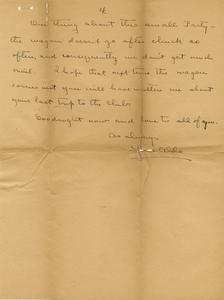 4
One thing about this small Party -
the wagon doesn't go after chuck so
often, and consequently we don't get much
mail. I hope that next time the wagon
comes out you will have written me about
your last trip to the Club.
Goodnight now and love to all of you.
As always